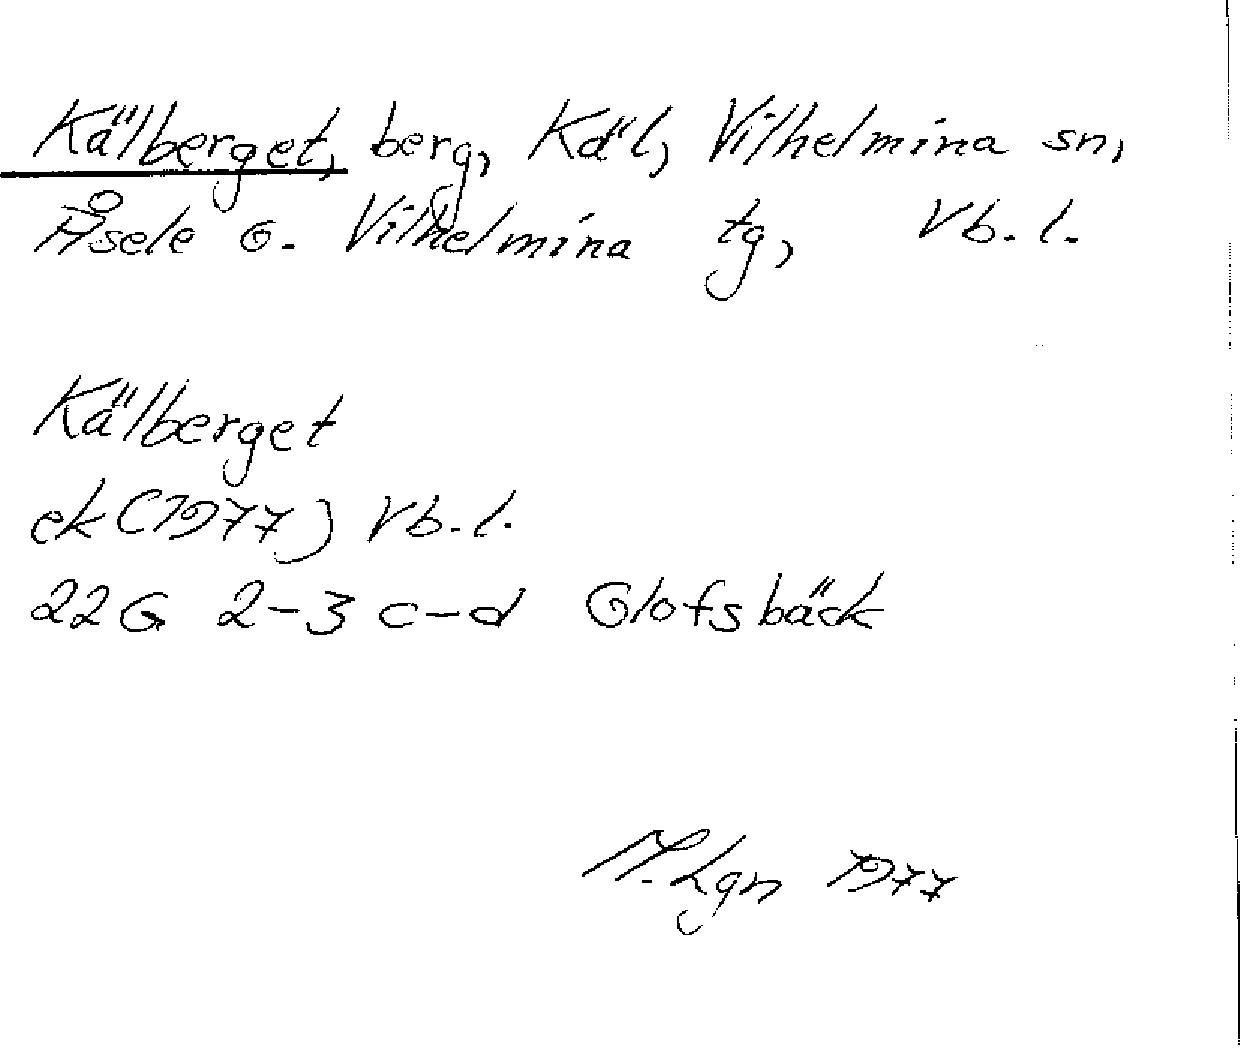 Kälberget, berg, Käl, Vilhelmina sn,
Åsele o. Vilhelmina tg, Vb. l.
Kälberget
ek (1977) Vb. l.
22G 2-3 c-d Olofsbäck
M. Lgn 1977